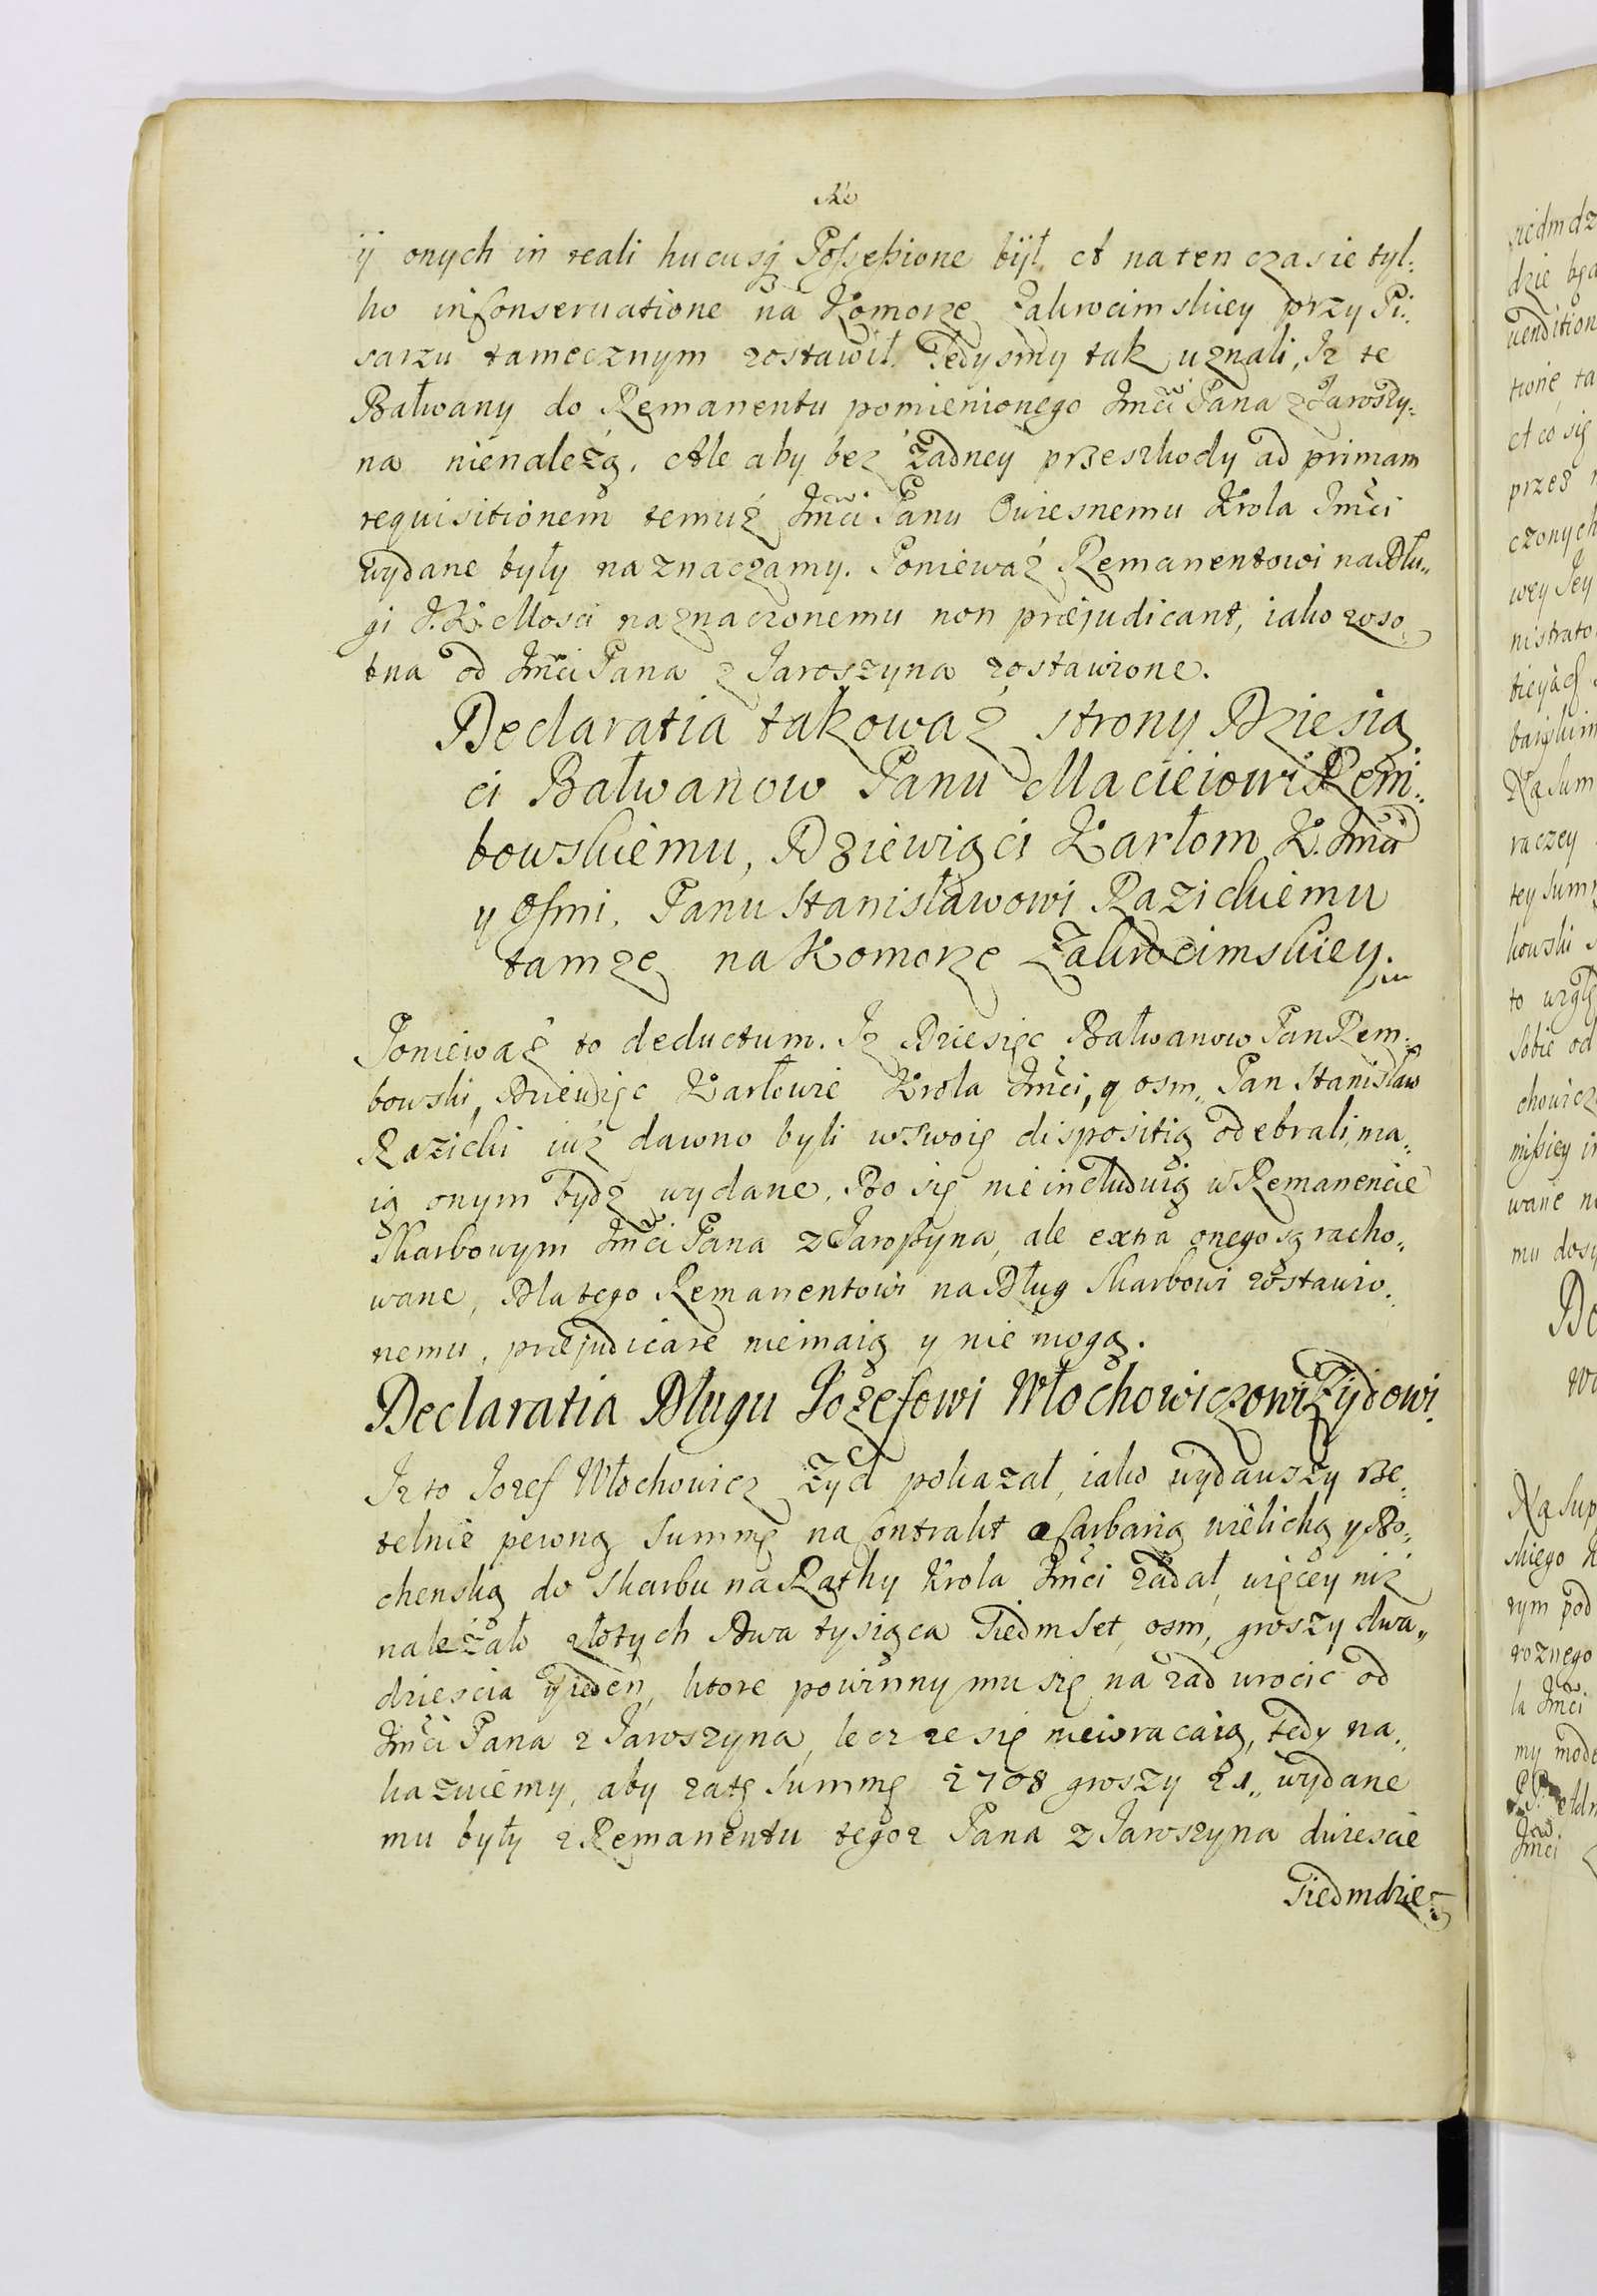 ÿ onych in reali hucusq Possessione bÿł, et naten czas ie tyl:
ko in Conseruatione na Komorze Zakrocimskiey przy Pi:
sarzu tamecznym zostawił. Tedysmy tak uznali, Iz te
Bałwany do Remanentu pomienionego Jmći Pana z Jaroszy:
na nienależą. Ale aby bez żadney przeszkody ad primam
requisitionem temuż Jmći Panu Owiesnemu Krola Jmći
wydane były naznaczamy. Ponieważ Remanentowi na Dłu„
gi J. K. Mosci naznaczonemu non præjudicant, iako zoso„
tna od Jmći Pana z Jaroszyna zostawione.
Declaratia takowaz strony Dziesią
ci Bałwanow Panu Macieiowi Rem„
bowskiemu, Dziewiąci Karłom K. Jmći
y Osmi. Panu Stanisławowi Razickiemu
tamze na Komorze Zakrocimskiey.
Ponieważ to deductum. Iz Dziesięc Bałwanow Pan Rem„
bowski, Dziewięc Karłowie Krola Jmći, y osm„ Pan Stanisław
Razicki iuż dawno byli w swoię dispositią odebrali, ma„
ią onym bydź wydane. Bo się nie includuią w Remanencie
Skarbowym Jmći Pana z Jaroszyna, ale extra onego są racho„
wane, Dlatego Remanentowi na Dług Skarbowi zostawio„
nemu, præjudicare niemaią y nie mogą.
Declaratia Długu Iozefowi Włochowiczowi Zÿdowi.
Iz to Iozef Włochowicz Zyd pokazał, iako wydawszy rze„
telnie pewną Summę na Contrakt o Carbarią wielicką y Bo„
chenską do Skarbu na Rathy Krola Jmći zadał, więcey niż
należało złotych Dwa tysiąca Siedm Set, osm, groszy dwa„
dziescia ÿ ieden, ktore powinny mu się nazad wrocic od
Jmći Pana z Jaroszyna, lecz ze się niewracaią, tedy na„
kazuiemy, aby zatę Summę 2708 groszy 21„ wydane
mu były z Remanentu tegoz Pana z Jaroszyna dwiescie
Siedmdzie„